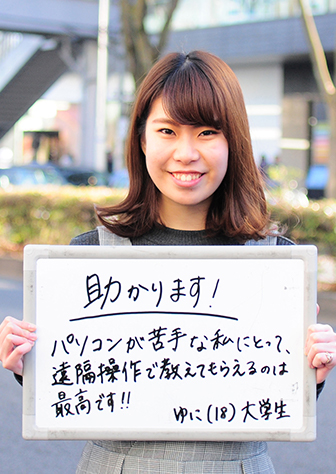 助かります!
パソコンが苦手な私にとって、
遠隔操作で教えてもらえるのは
最高です!!
ゆに(18)大学生